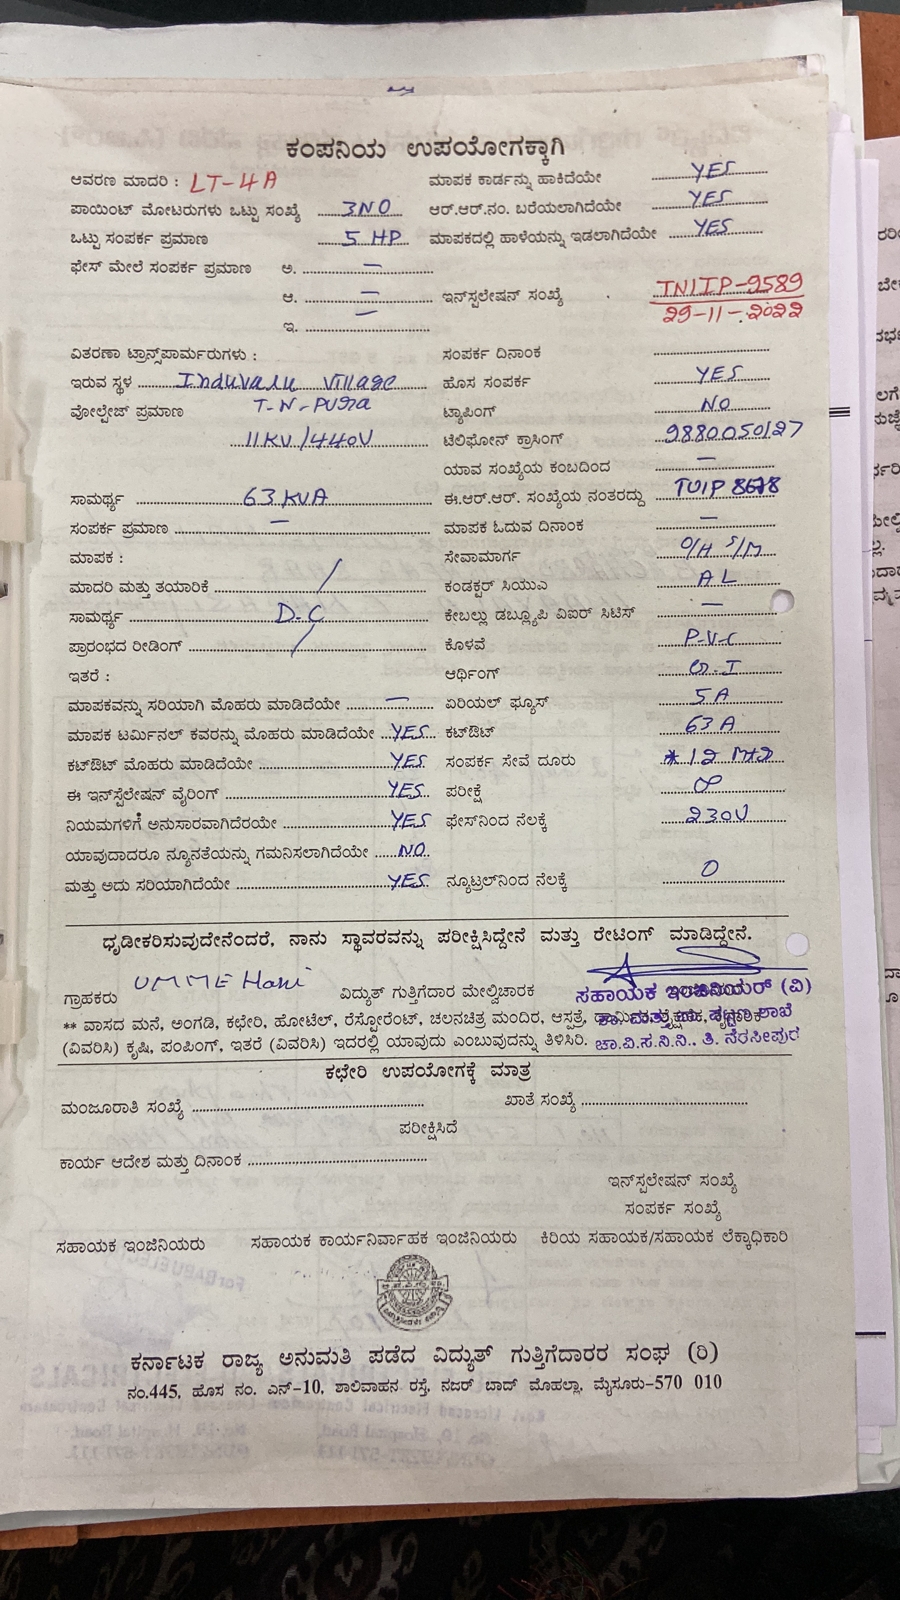 ಕಂಪನಿಯ ಉಪಯೋಗಕ್ಕಾಗಿ
ಆವರಣ ಮಾದರಿ : LT-4A ಮಾಪಕ ಕಾರ್ಡನ್ನು ಹಾಕಿದೆಯೇ YES
ಪಾಯಿಂಟ್ ಮೋಟರುಗಳು ಒಟ್ಟು ಸಂಖ್ಯೆ 3NO ಆರ್.ಆರ್.ನಂ. ಬರೆಯಲಾಗಿದೆಯೇ YES
ಒಟ್ಟು ಸಂಪರ್ಕ ಪ್ರಮಾಣ 5 HP ಮಾಪಕದಲ್ಲಿ ಹಾಳೆಯನ್ನು ಇಡಲಾಗಿದೆಯೇ YES
ಫೇಸ್ ಮೇಲೆ ಸಂಪರ್ಕ ಪ್ರಮಾಣ ಅ. —
ಆ. — ಇನ್‌ಸ್ಪಲೇಷನ್ ಸಂಖ್ಯೆ TNITP-9589
ಇ. — 29-11-2022
ವಿತರಣಾ ಟ್ರಾನ್ಸ್‌ಪಾರ್ಮರುಗಳು : ಸಂಪರ್ಕ ದಿನಾಂಕ
ಇರುವ ಸ್ಥಳ Induvalu Village ಹೊಸ ಸಂಪರ್ಕ YES
ವೋಲ್ಟೇಜ್ ಪ್ರಮಾಣ T-N-PURa ಟ್ಯಾಪಿಂಗ್ NO
11KV/440V ಟೆಲಿಫೋನ್ ಕ್ರಾಸಿಂಗ್ 9880050127
ಯಾವ ಸಂಖ್ಯೆಯ ಕಂಬದಿಂದ —
ಸಾಮರ್ಥ್ಯ 63 KVA ಈ.ಆರ್.ಆರ್. ಸಂಖ್ಯೆಯ ನಂತರದ್ದು
ಸಂಪರ್ಕ ಪ್ರಮಾಣ — ಮಾಪಕ ಓದುವ ದಿನಾಂಕ —
ಮಾಪಕ : ಸೇವಾಮಾರ್ಗ O/H S/M
ಮಾದರಿ ಮತ್ತು ತಯಾರಿಕೆ / ಕಂಡಕ್ಟರ್ ಸಿಯುಎ AL
ಸಾಮರ್ಥ್ಯ D.C ಕೇಬಲ್ಲು ಡಬ್ಲ್ಯೂಪಿ ವಿಐಆರ್ ಸಿಟಿಸ್ —
ಪ್ರಾರಂಭದ ರೀಡಿಂಗ್ / ಕೊಳವೆ P-V-C
ಇತರೆ : ಆರ್ಥಿಂಗ್ G.I
ಮಾಪಕವನ್ನು ಸರಿಯಾಗಿ ಮೊಹರು ಮಾಡಿದೆಯೇ — ಏರಿಯಲ್ ಫ್ಯೂಸ್ 5A
ಮಾಪಕ ಟರ್ಮಿನಲ್ ಕವರನ್ನು ಮೊಹರು ಮಾಡಿದೆಯೇ YES ಕಟ್‌ಔಟ್ 63 A
ಕಟ್‌ಔಟ್ ಮೊಹರು ಮಾಡಿದೆಯೇ YES ಸಂಪರ್ಕ ಸೇವೆ ದೂರು
ಈ ಇನ್‌ಸ್ಟೆಲೇಷನ್ ವೈರಿಂಗ್ YES ಪರೀಕ್ಷೆ ∞
ನಿಯಮಗಳಿಗೆ ಅನುಸಾರವಾಗಿದೆರಯೇ YES ಫೇಸ್‌ನಿಂದ ನೆಲಕ್ಕೆ 230V
ಯಾವುದಾದರೂ ನ್ಯೂನತೆಯನ್ನು ಗಮನಿಸಲಾಗಿದೆಯೇ NO
ಮತ್ತು ಅದು ಸರಿಯಾಗಿದೆಯೇ YES ನ್ಯೂಟ್ರಲ್‌ನಿಂದ ನೆಲಕ್ಕೆ 0
ಧೃಡೀಕರಿಸುವುದೇನೆಂದರೆ, ನಾನು ಸ್ಥಾವರವನ್ನು ಪರೀಕ್ಷಿಸಿದ್ದೇನೆ ಮತ್ತು ರೇಟಿಂಗ್ ಮಾಡಿದ್ದೇನೆ.
ಗ್ರಾಹಕರು UMME Hani ವಿದ್ಯುತ್ ಗುತ್ತಿಗೆದಾರ ಮೇಲ್ವಿಚಾರಕ ಸಹಾಯಕ ಇಂಜಿನಿಯರ್ (ವಿ)
** ವಾಸದ ಮನೆ, ಅಂಗಡಿ, ಕಛೇರಿ, ಹೋಟೆಲ್, ರೆಸ್ಟೋರೆಂಟ್, ಚಲನಚಿತ್ರ ಮಂದಿರ, ಆಸ್ಪತ್ರೆ,
(ವಿವರಿಸಿ) ಕೃಷಿ, ಪಂಪಿಂಗ್, ಇತರೆ (ವಿವರಿಸಿ) ಇದರಲ್ಲಿ ಯಾವುದು ಎಂಬುವುದನ್ನು ತಿಳಿಸಿರಿ. ಚಾ.ವಿ.ಸ.ನಿ.ನಿ., ತಿ. ನರಸೀಪುರ
ಕಛೇರಿ ಉಪಯೋಗಕ್ಕೆ ಮಾತ್ರ
ಮಂಜೂರಾತಿ ಸಂಖ್ಯೆ ಖಾತೆ ಸಂಖ್ಯೆ
ಪರೀಕ್ಷಿಸಿದೆ
ಕಾರ್ಯ ಆದೇಶ ಮತ್ತು ದಿನಾಂಕ
ಇನ್‌ಸ್ಪಲೇಷನ್ ಸಂಖ್ಯೆ
ಸಂಪರ್ಕ ಸಂಖ್ಯೆ
ಸಹಾಯಕ ಇಂಜಿನಿಯರು ಸಹಾಯಕ ಕಾರ್ಯನಿರ್ವಾಹಕ ಇಂಜಿನಿಯರು ಕಿರಿಯ ಸಹಾಯಕ/ಸಹಾಯಕ ಲೆಕ್ಕಾಧಿಕಾರಿ
ಕರ್ನಾಟಕ ರಾಜ್ಯ ಅನುಮತಿ ಪಡೆದ ವಿದ್ಯುತ್ ಗುತ್ತಿಗೆದಾರರ ಸಂಘ (ರಿ)
ನಂ.445, ಹೊಸ ನಂ. ಎನ್-10, ಶಾಲಿವಾಹನ ರಸ್ತೆ, ನಜರ್ ಬಾದ್ ಮೊಹಲ್ಲಾ, ಮೈಸೂರು-570 010